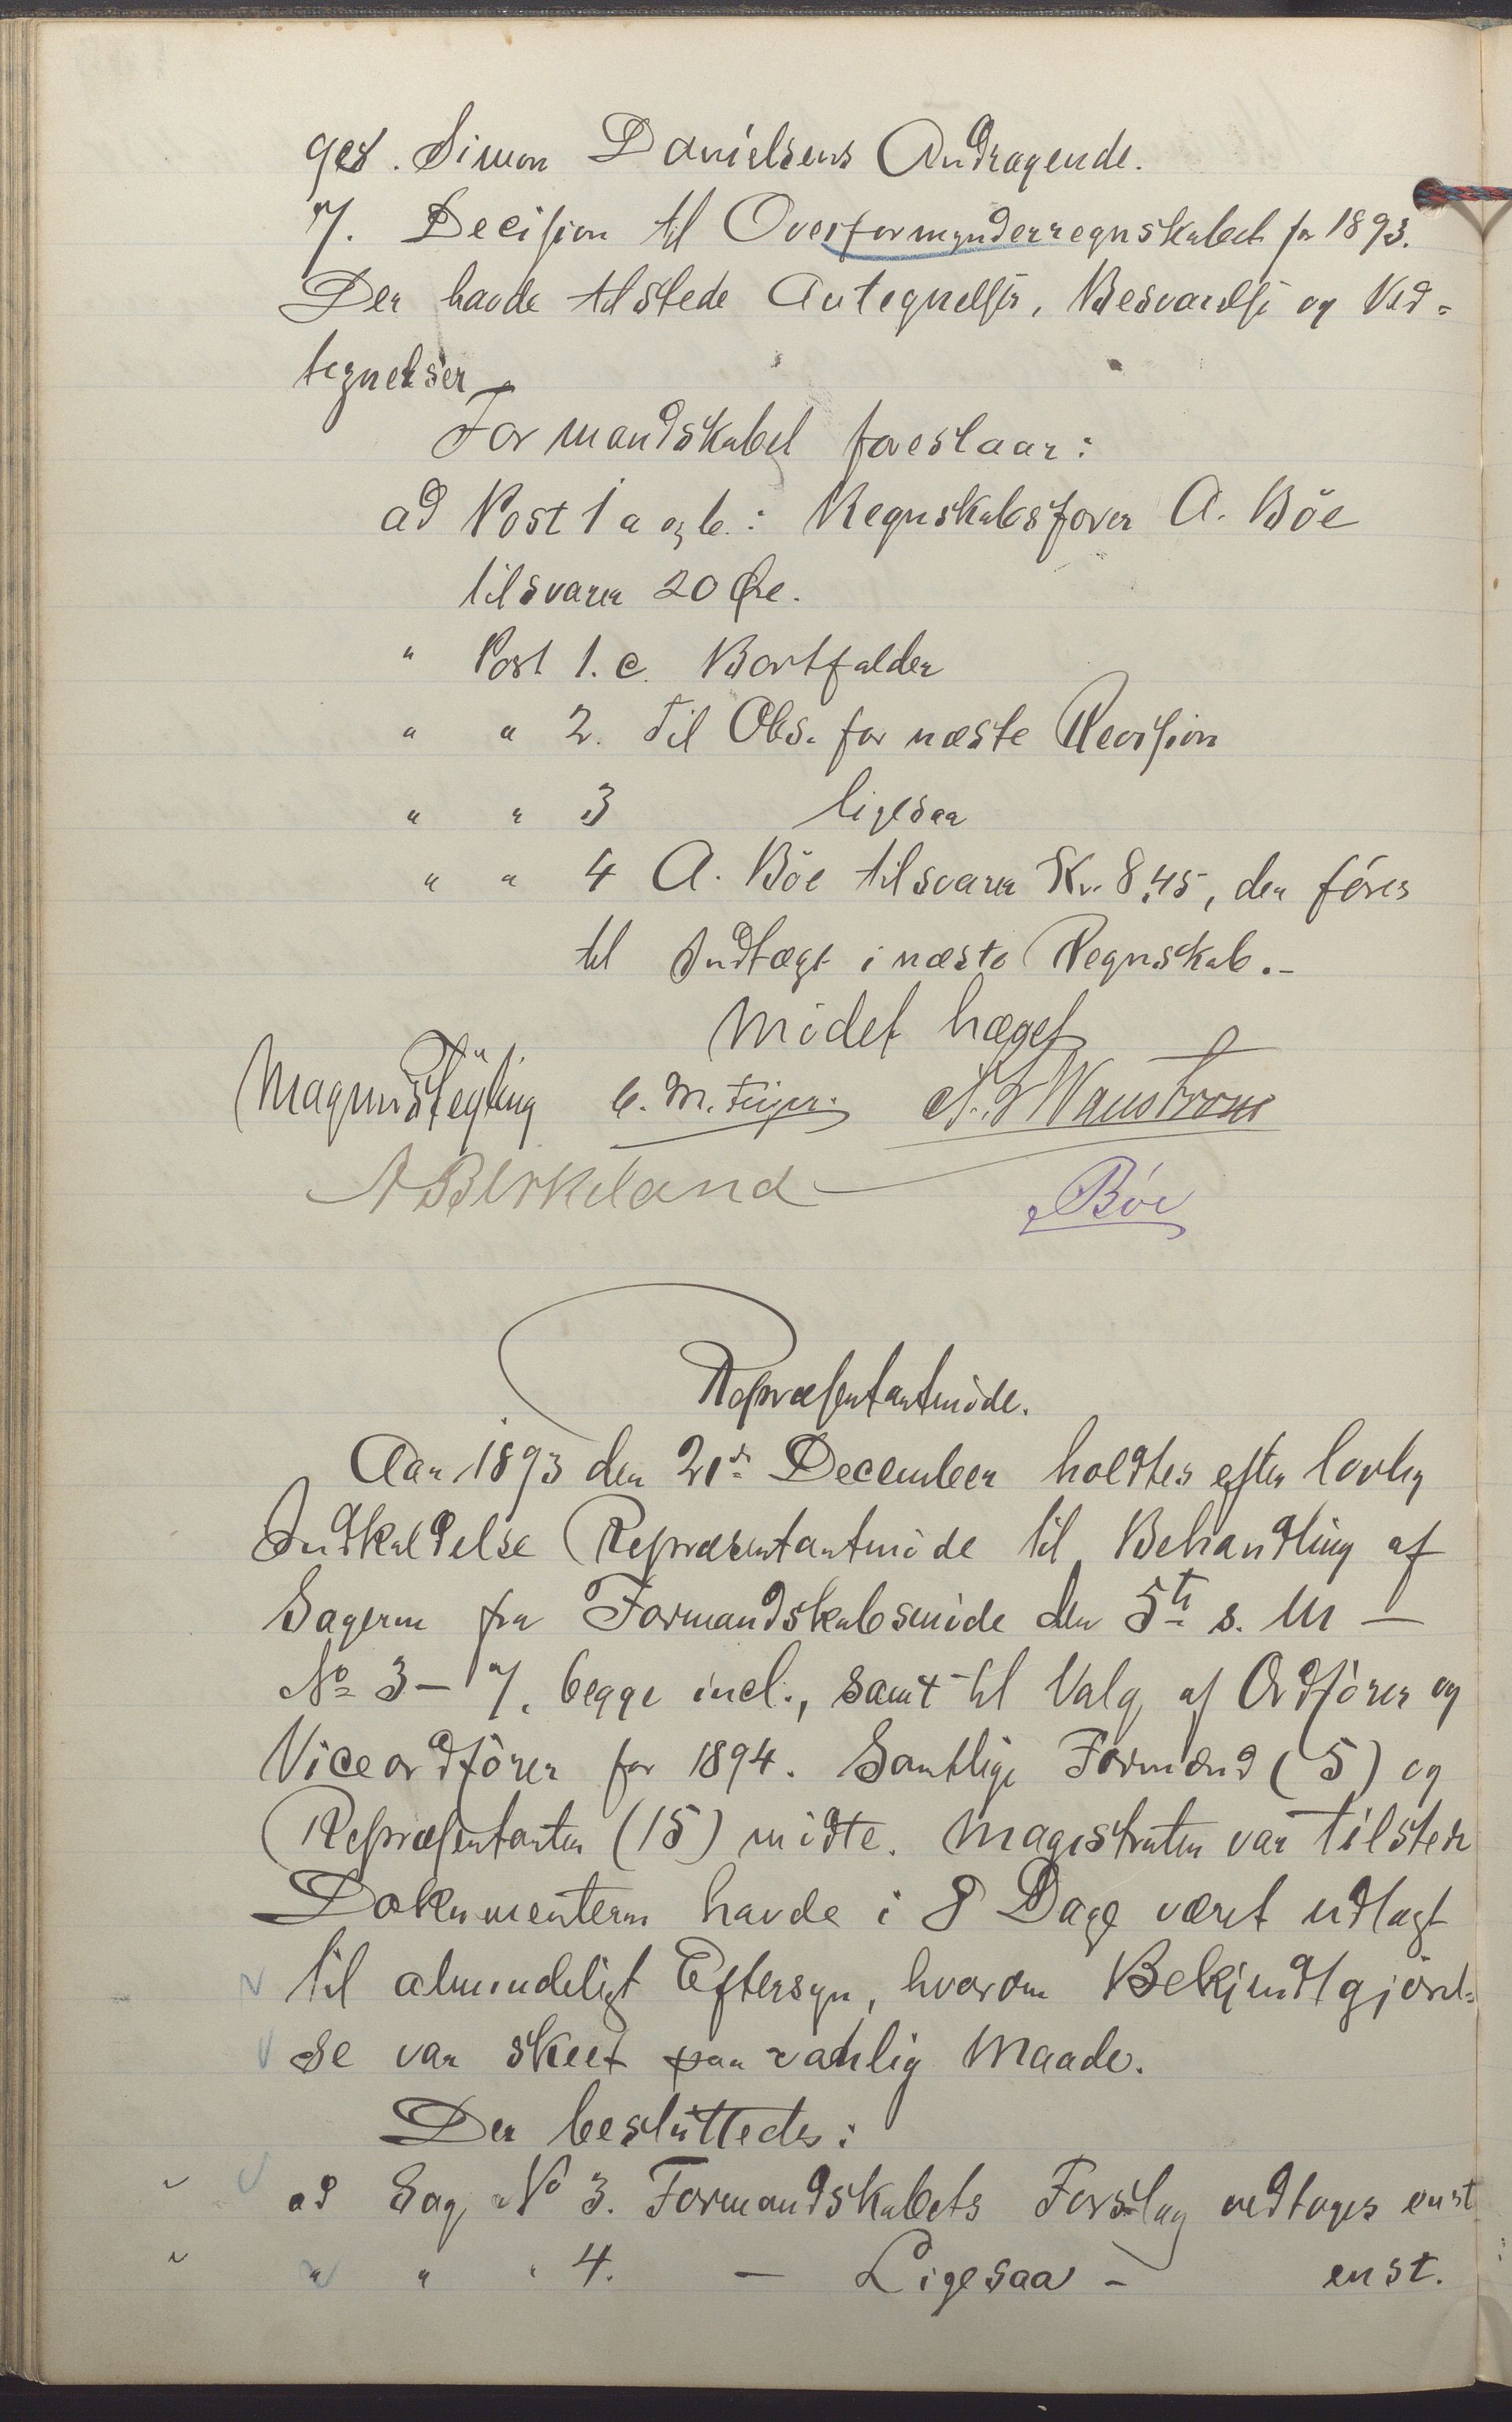 ges. Simon Danielsens Andragende.
7. Decision til Overformynderregnskabet for 1893.
Der havde tilstede Antegnelser, Besvarelse og Ved-
tegnelser
Formandskabet foreslaar:
ad Post 1 a og b.: Regnskabsfører A. Böe
tilsvarer 20 Øre.
" Post 1. c. Bortfalder
" " 2. Til Obs. for næste Revision
" " 3 ligesaa
" " 4 A. Böe tilsvarer Kr. 8,45, der föres
til Indtægt i næste Regnskab.-
Mödet hævet
C. M.
A Birkeland Böe
Repræsentantmöde.
Aar 1893 den 21de December holdtes efter lovlig
Indkaldelse Repræsentantmöde til Behandling af
Sagerne fra Formandskabsmöde den 5te s. M –
No 3 – 7, begge incl., samt til Valg af Ordförer og
Viceordförer for 1894. Samtlige Formænd (5) og
Repræsentanter (15) mödte. Magistraten var tilstede
Dokumenterne havde i 8 Dage været udlagt
til almindeligt Eftersyn, hvorom Bekjendtgjörel-
se var skeet paa vanlig Maade.
Der besluttedes:
ad Sag No 3. Formandskabets Forslag vedtoges enst.
" " " 4. – Ligesaa – enst.